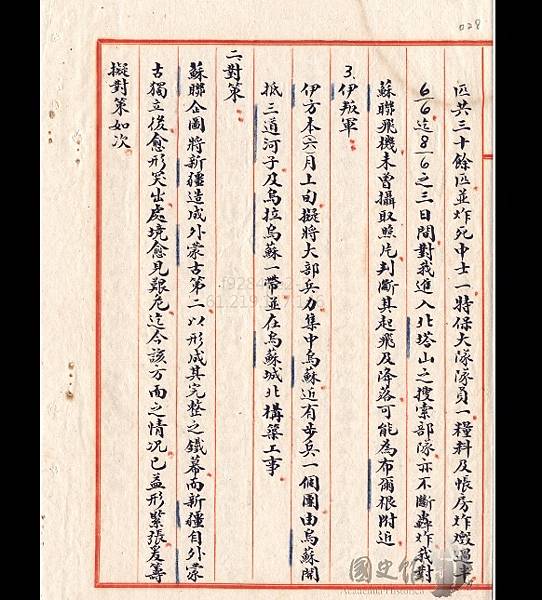 028
匹共三十餘匹並炸死中士一特保大隊隊員一糧料及帳房炸燬過半
6/6迄8/6之三日間對我進入北塔山之搜索部隊亦不斷轟炸我對
蘇聯飛機未曾攝取照片判斷其起飛及降落可能為布爾根附近
3.伊叛軍
伊方本(六)月上旬擬將大部兵力集中烏蘇近有步兵一個團由烏蘇開
抵三道河子及烏拉烏蘇一帶並在烏蘇城北構築工事
二、對策
蘇聯企圖將新疆造成外蒙古第二以形成其完整之鐵幕而新疆自外蒙
古獨立後愈形突出處境愈見艱危迄今該方面之情況已益形緊張爰籌
擬對策如次
國史館
Academia Historica